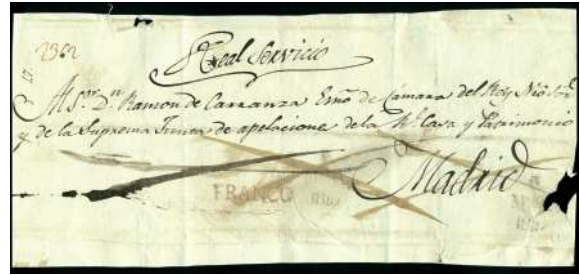 2362
Real Servicio
Al S.or D.n Ramon de Carranza Essño de Cámara del Rey Nro Sor
y de la Suprema Junta de apelaciones de la Rl. Casa y Patrimonio
Madrid
FRANCO